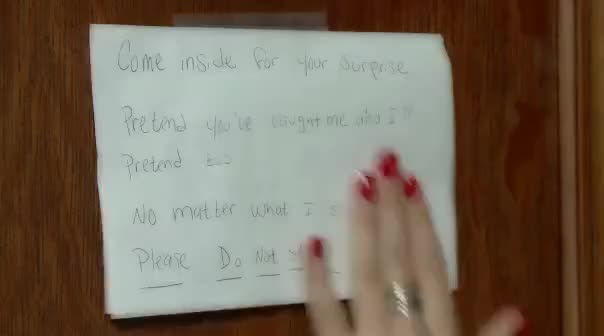 Come inside for your surprise
Pretend you've caught me and I'll
Pretend to
No matter what I
Please Do Not